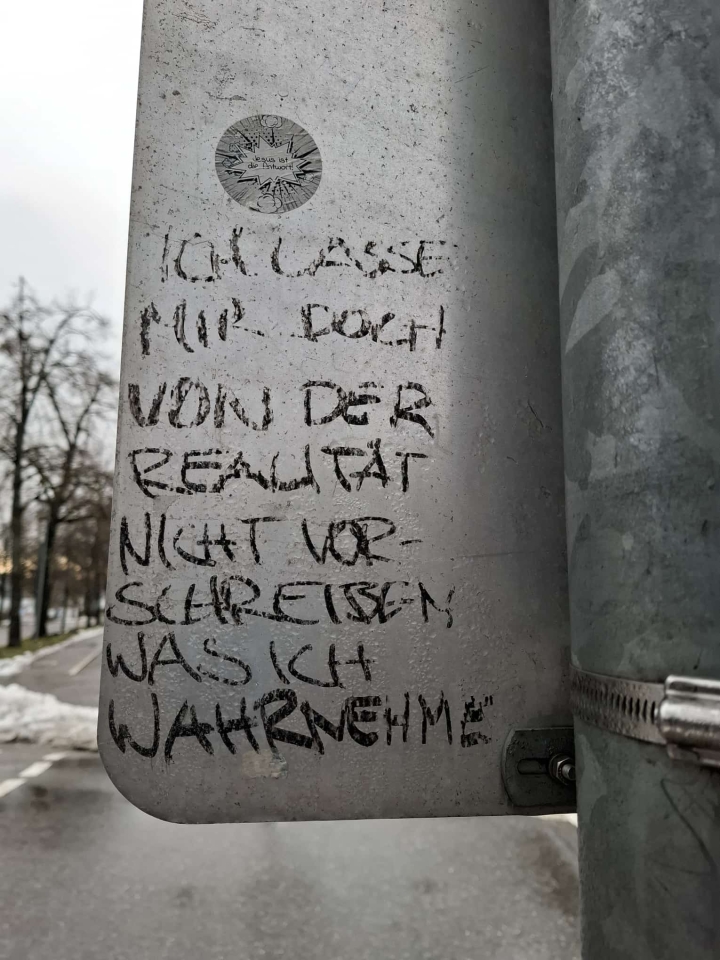 Jesus ist
die Antwort!
ICH LASSE
MIR DOCH
VON DER
REALITÄT
NICHT VOR-
SCHREIBEN
WAS ICH
WAHRNEHME